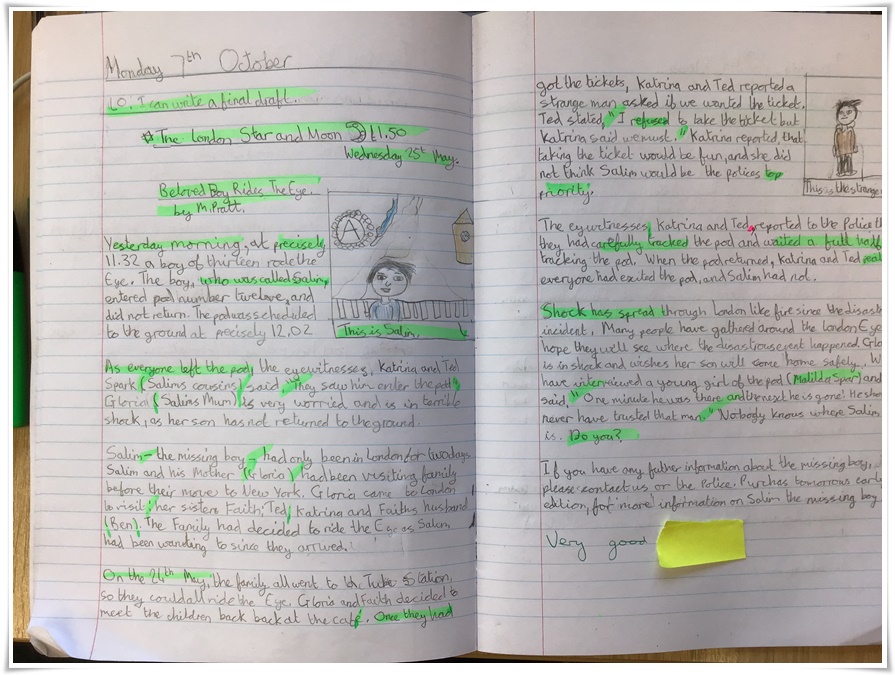 Monday 7th October
LO: I can write a final draft.
The London Star and Moon £1.50
Wednesday 25th May.
Beloved Boy Rides The Eye.
by M.Pratt.
Yesterday morning, at precisely
11.32 a boy of thirteen rode the
Eye. The boy, who was called Salim,
entered pod number twelove, and
did not return. The pod was scheduled
to the ground at precisely 12.02
This is Salim.
As everyone left the pod, the eyewitnesses, Katrina and Ted
Spark (Salims cousins) said, "They saw him enter the pod".
Gloria (Salims Mum) is very worried and is in terrible
shock, as her son has not returned to the ground.
Salim - the missing boy - had only been in London for two days.
Salim and his Mother (Gloria) had been visiting family
before their move to New York. Gloria came to London
to visit; her sister Faith; Ted; Katrina and Faiths husband
(Ben). The Family had decided to ride the Eye as Salim
had been wanting to since they arrived.
On the 24th May, the family all went to the Tube Station,
so they could all ride the Eye. Gloria and Faith decided to
meet the children back back at the café. Once they had
got the tickets, Katrina and Ted reported a
strange man asked if we wanted the ticket.
Ted stated, "I refused to take the ticket but
Katrina said we must." Katrina reported, that
taking the ticket would be fun, and she did
not think Salim would be the polices top
priority.
This is the strange
The eyewitnesses, Katrina and Ted, reported to the Police th
they had carefully tracked the pod and waited a full half
tracking the pod. When the pod returned, Katrina and Ted real
everyone had exited the pod, and Salim had not.
Shock has spread through London like fire since the disast
incident. Many people have gathered around the London Eye
hope they we'll see where the disastrious event happened. Glo
is in shock and wishes her son will come home safely. W
have interviewed a young girl of the pod (Matilda Spar) and
said, "One minute he was there and the next he is gone! He shou
never have trusted that man." Notbody knows where Salim
is. Do you?
If you have any futher information about the missing boy,
please contact us or the Police. Purchas tomorows early
edition, for more information on Salim the missing boy
Very good